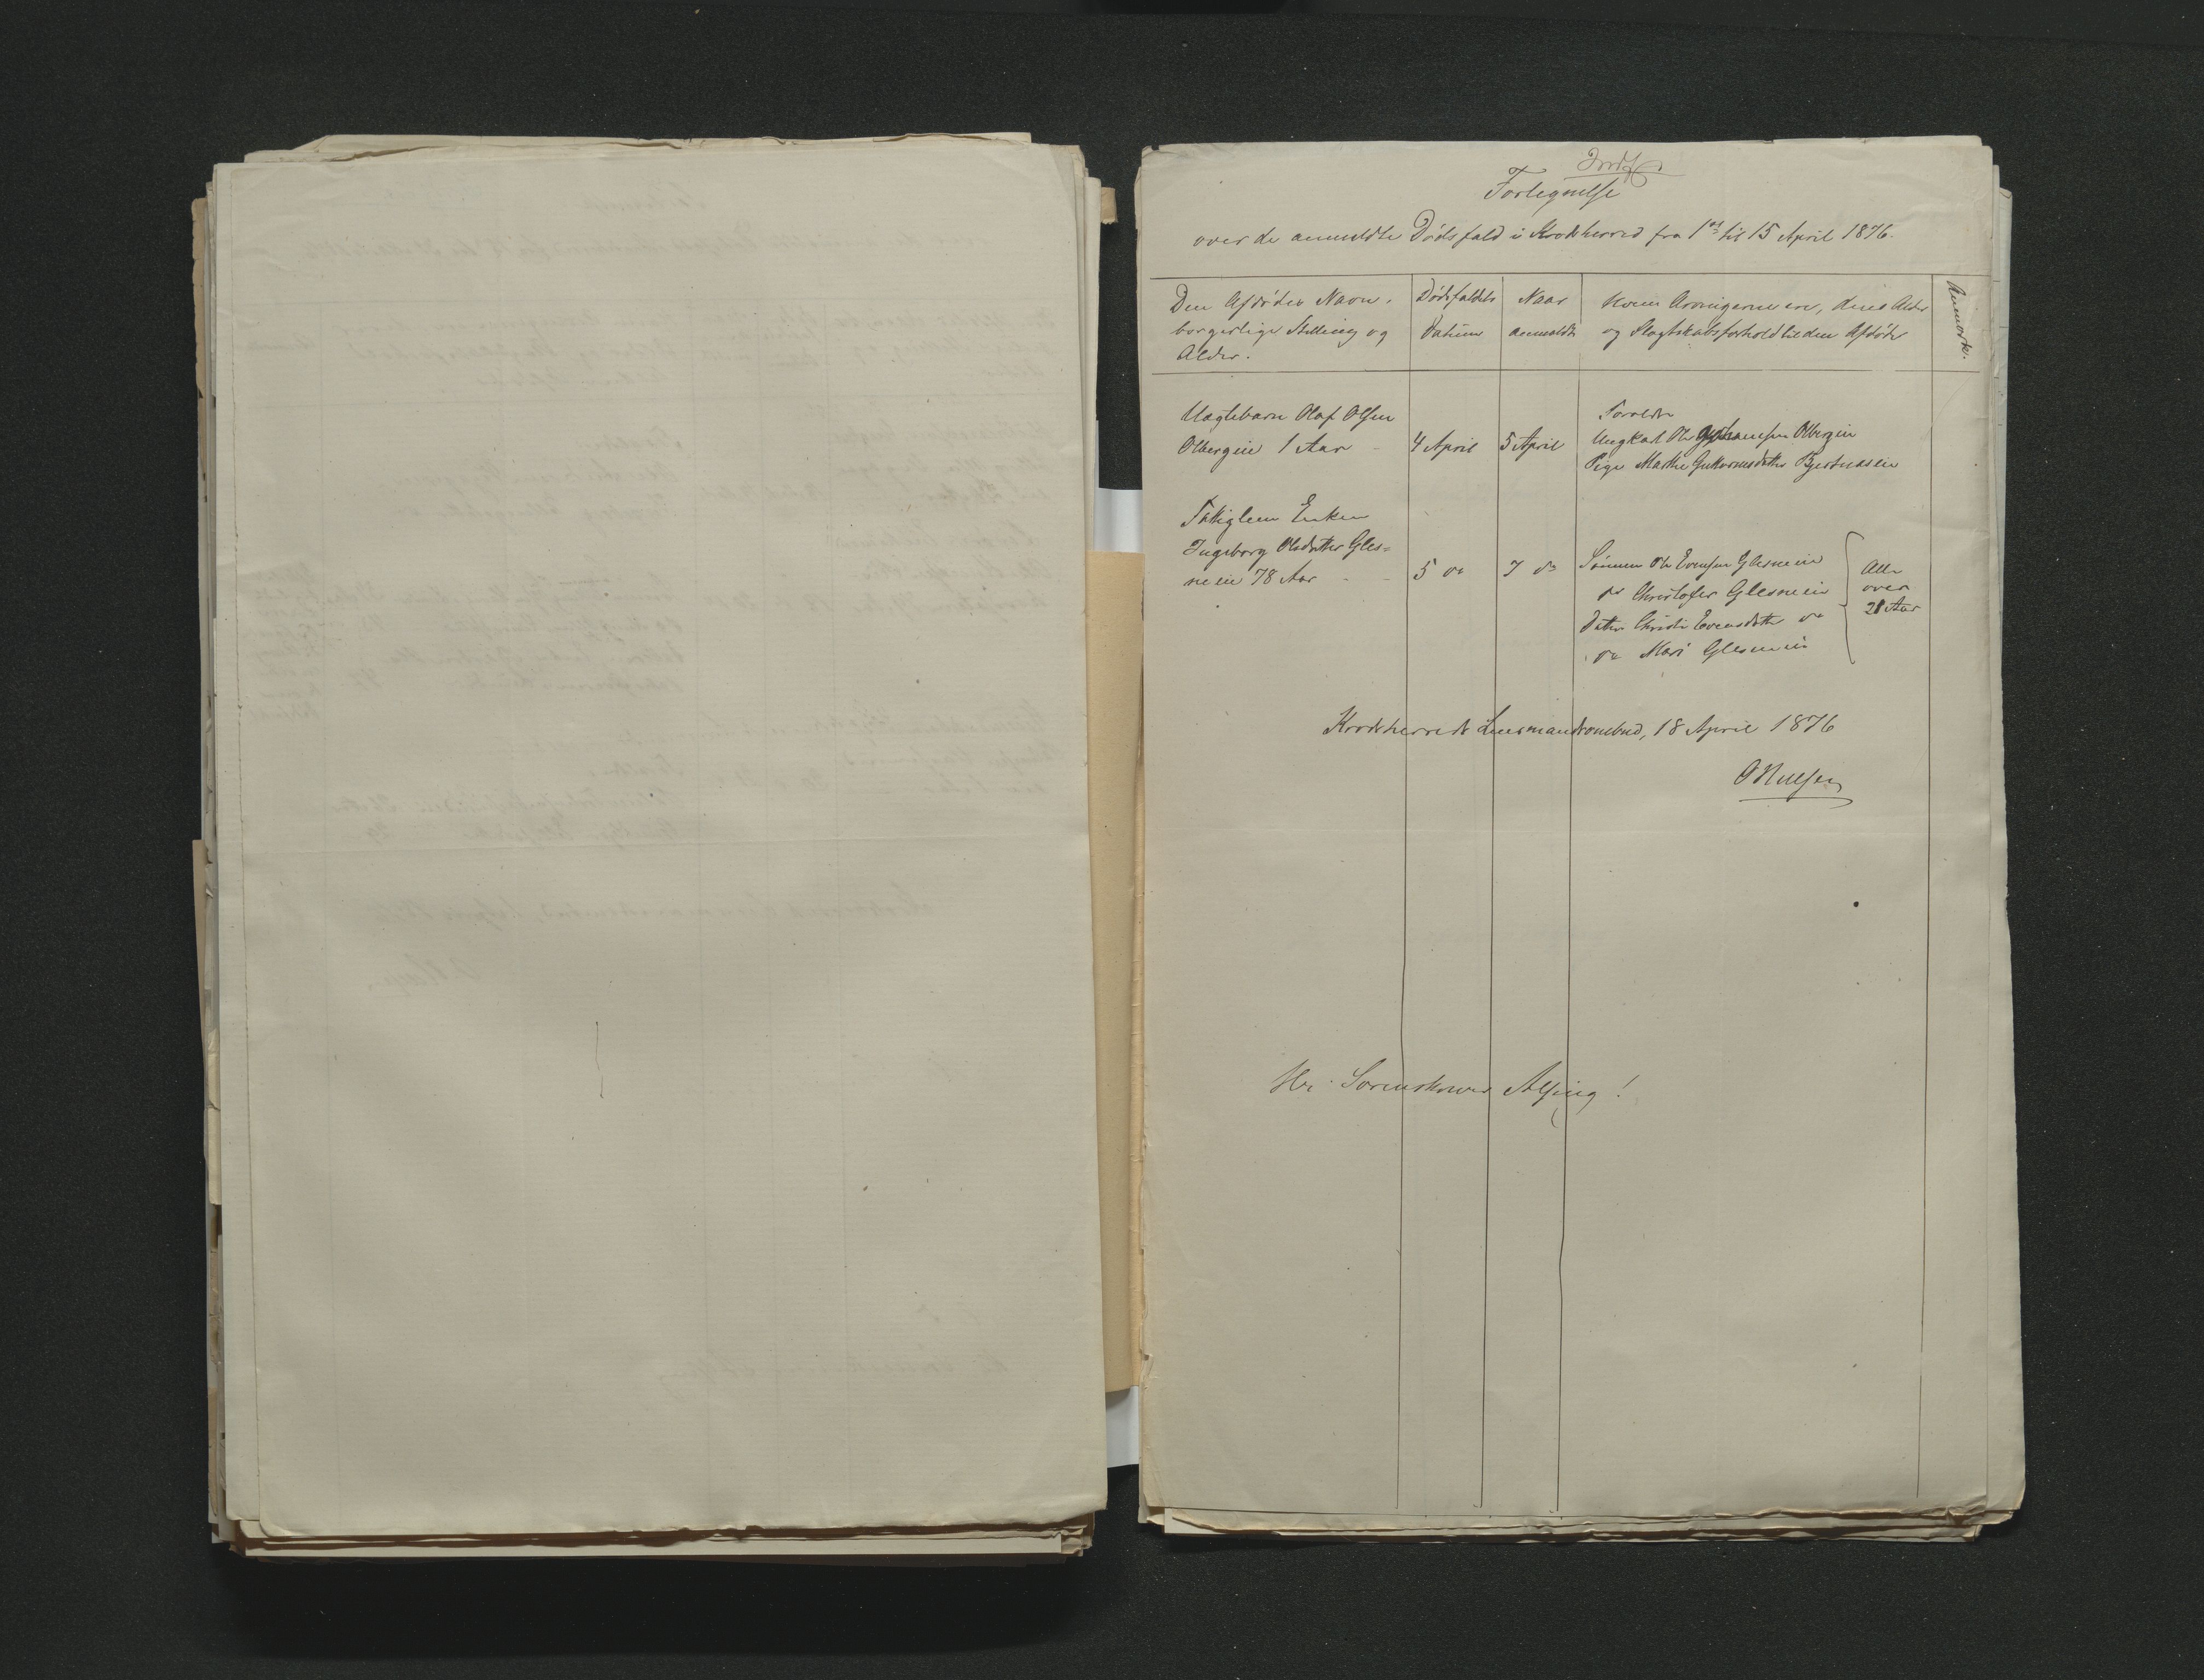 Fortegnelse
over de anmeldte Dødsfald i Krødsherred fra 1ste til 15 April 1876.
Den Afdødes Navn,
borgerlige Stilling og
Alder.
Dødsfaldets
Datum
Naar
anmeldt
Hvem Arvingerne ere, deres Alder
og Slægtskabsforhold til den Afdøde
Anmærk.
Uægtebarn Olaf Olsen
Olbergeie 1 Aar
4 April
5 April
Forældre
Ungkarl Ole Olbergeie
Pige Marthe Guttormsdatter
Fattiglem Enken
Ingeborg Olsdatter Gles=
neeie 78 Aar
5 do
7 do
Sønnen Ole Evensen Glesneeie
do Christofer Glesneeie
Datter Christi Evensdatter do
do Mari Glesneeie
Alle
over
21 Aar
Krødsherreds Lensmandsombud, 18 April 1876
Hr. Sorenskriver